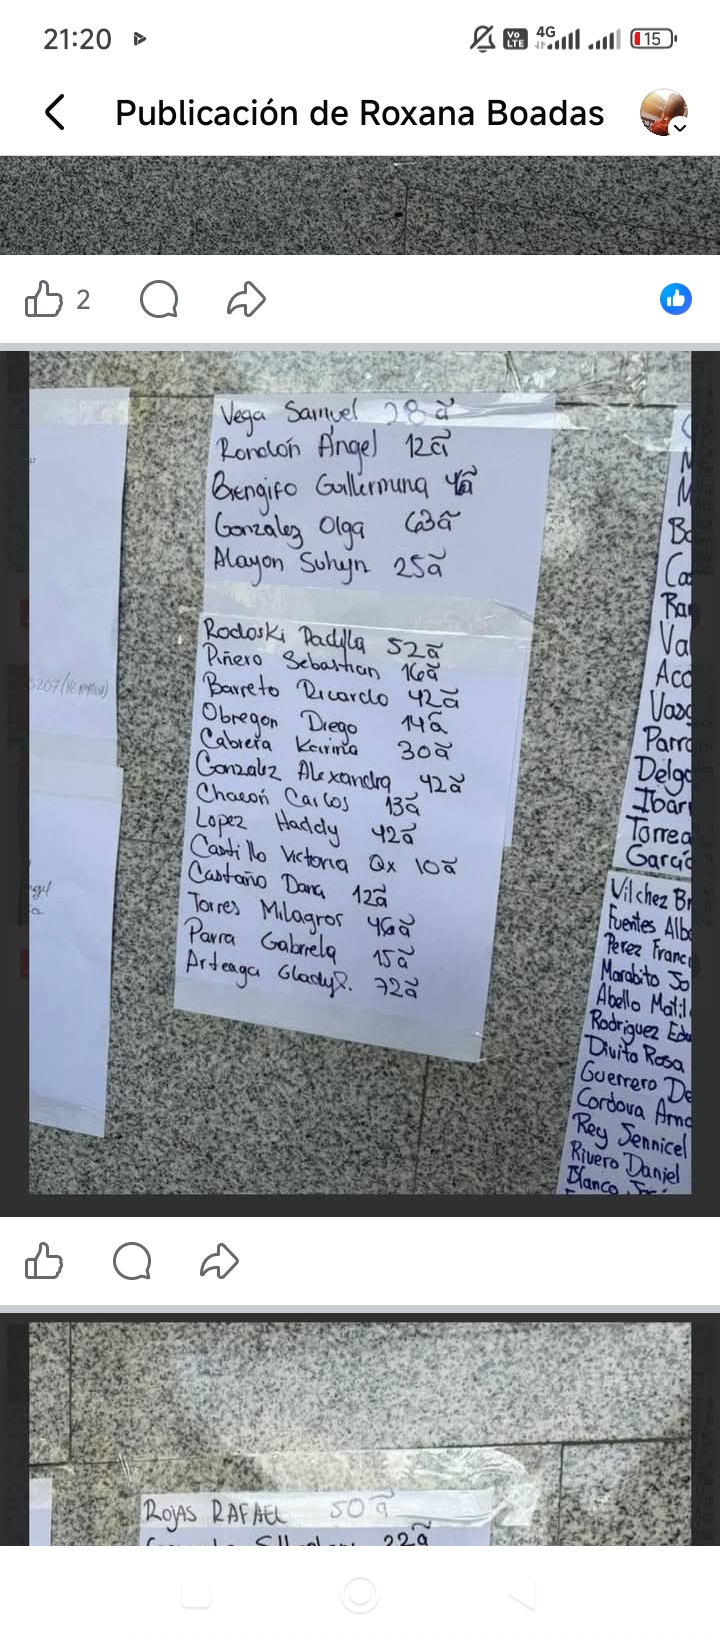 21:20
Vo LTE 4G 15
Publicación de Roxana Boadas
2
Vega Samuel 28ã
Rondón Ángel 12ã
Brengifo Guillermina 4ã
Gonzalez Olga 63ã
Alayon Suhyn 25ã
Rodoski Padilla 52ã
Piñero Sebastian 16ã
Barreto Ricardo 42ã
Obregon Diego 14ã
Cabrera Karina 30ã
Gonzalez Alexandra 42ã
Chacón Carlos 13ã
Lopez Haddy 42ã
Castillo Victoria Qx 10ã
Castaño Dana 12ã
Torres Milagros 46ã
Parra Gabriela 15ã
Arteaga Gladys. 72ã
Bo
Ca
Ram
Val
Aco
Vasq
Parra
Delga
Ibar
Torrea
García
Vilchez Br
Fuentes Alb
Perez Franc
Marabito Jo
Abello Matil
Rodriguez Edu
Divito Rosa
Guerrero De
Cordova Arno
Rey Jennicel
Rivero Daniel
Blanco José
ROJAS RAFAEL 50ã
22ã